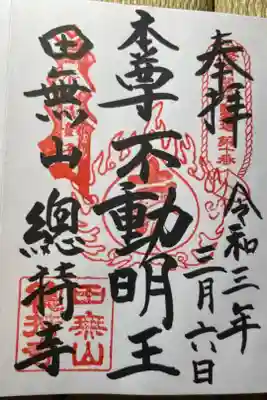 奉拝
令和三年
三月六日
本尊不動明王
田無山
總持寺
田無山